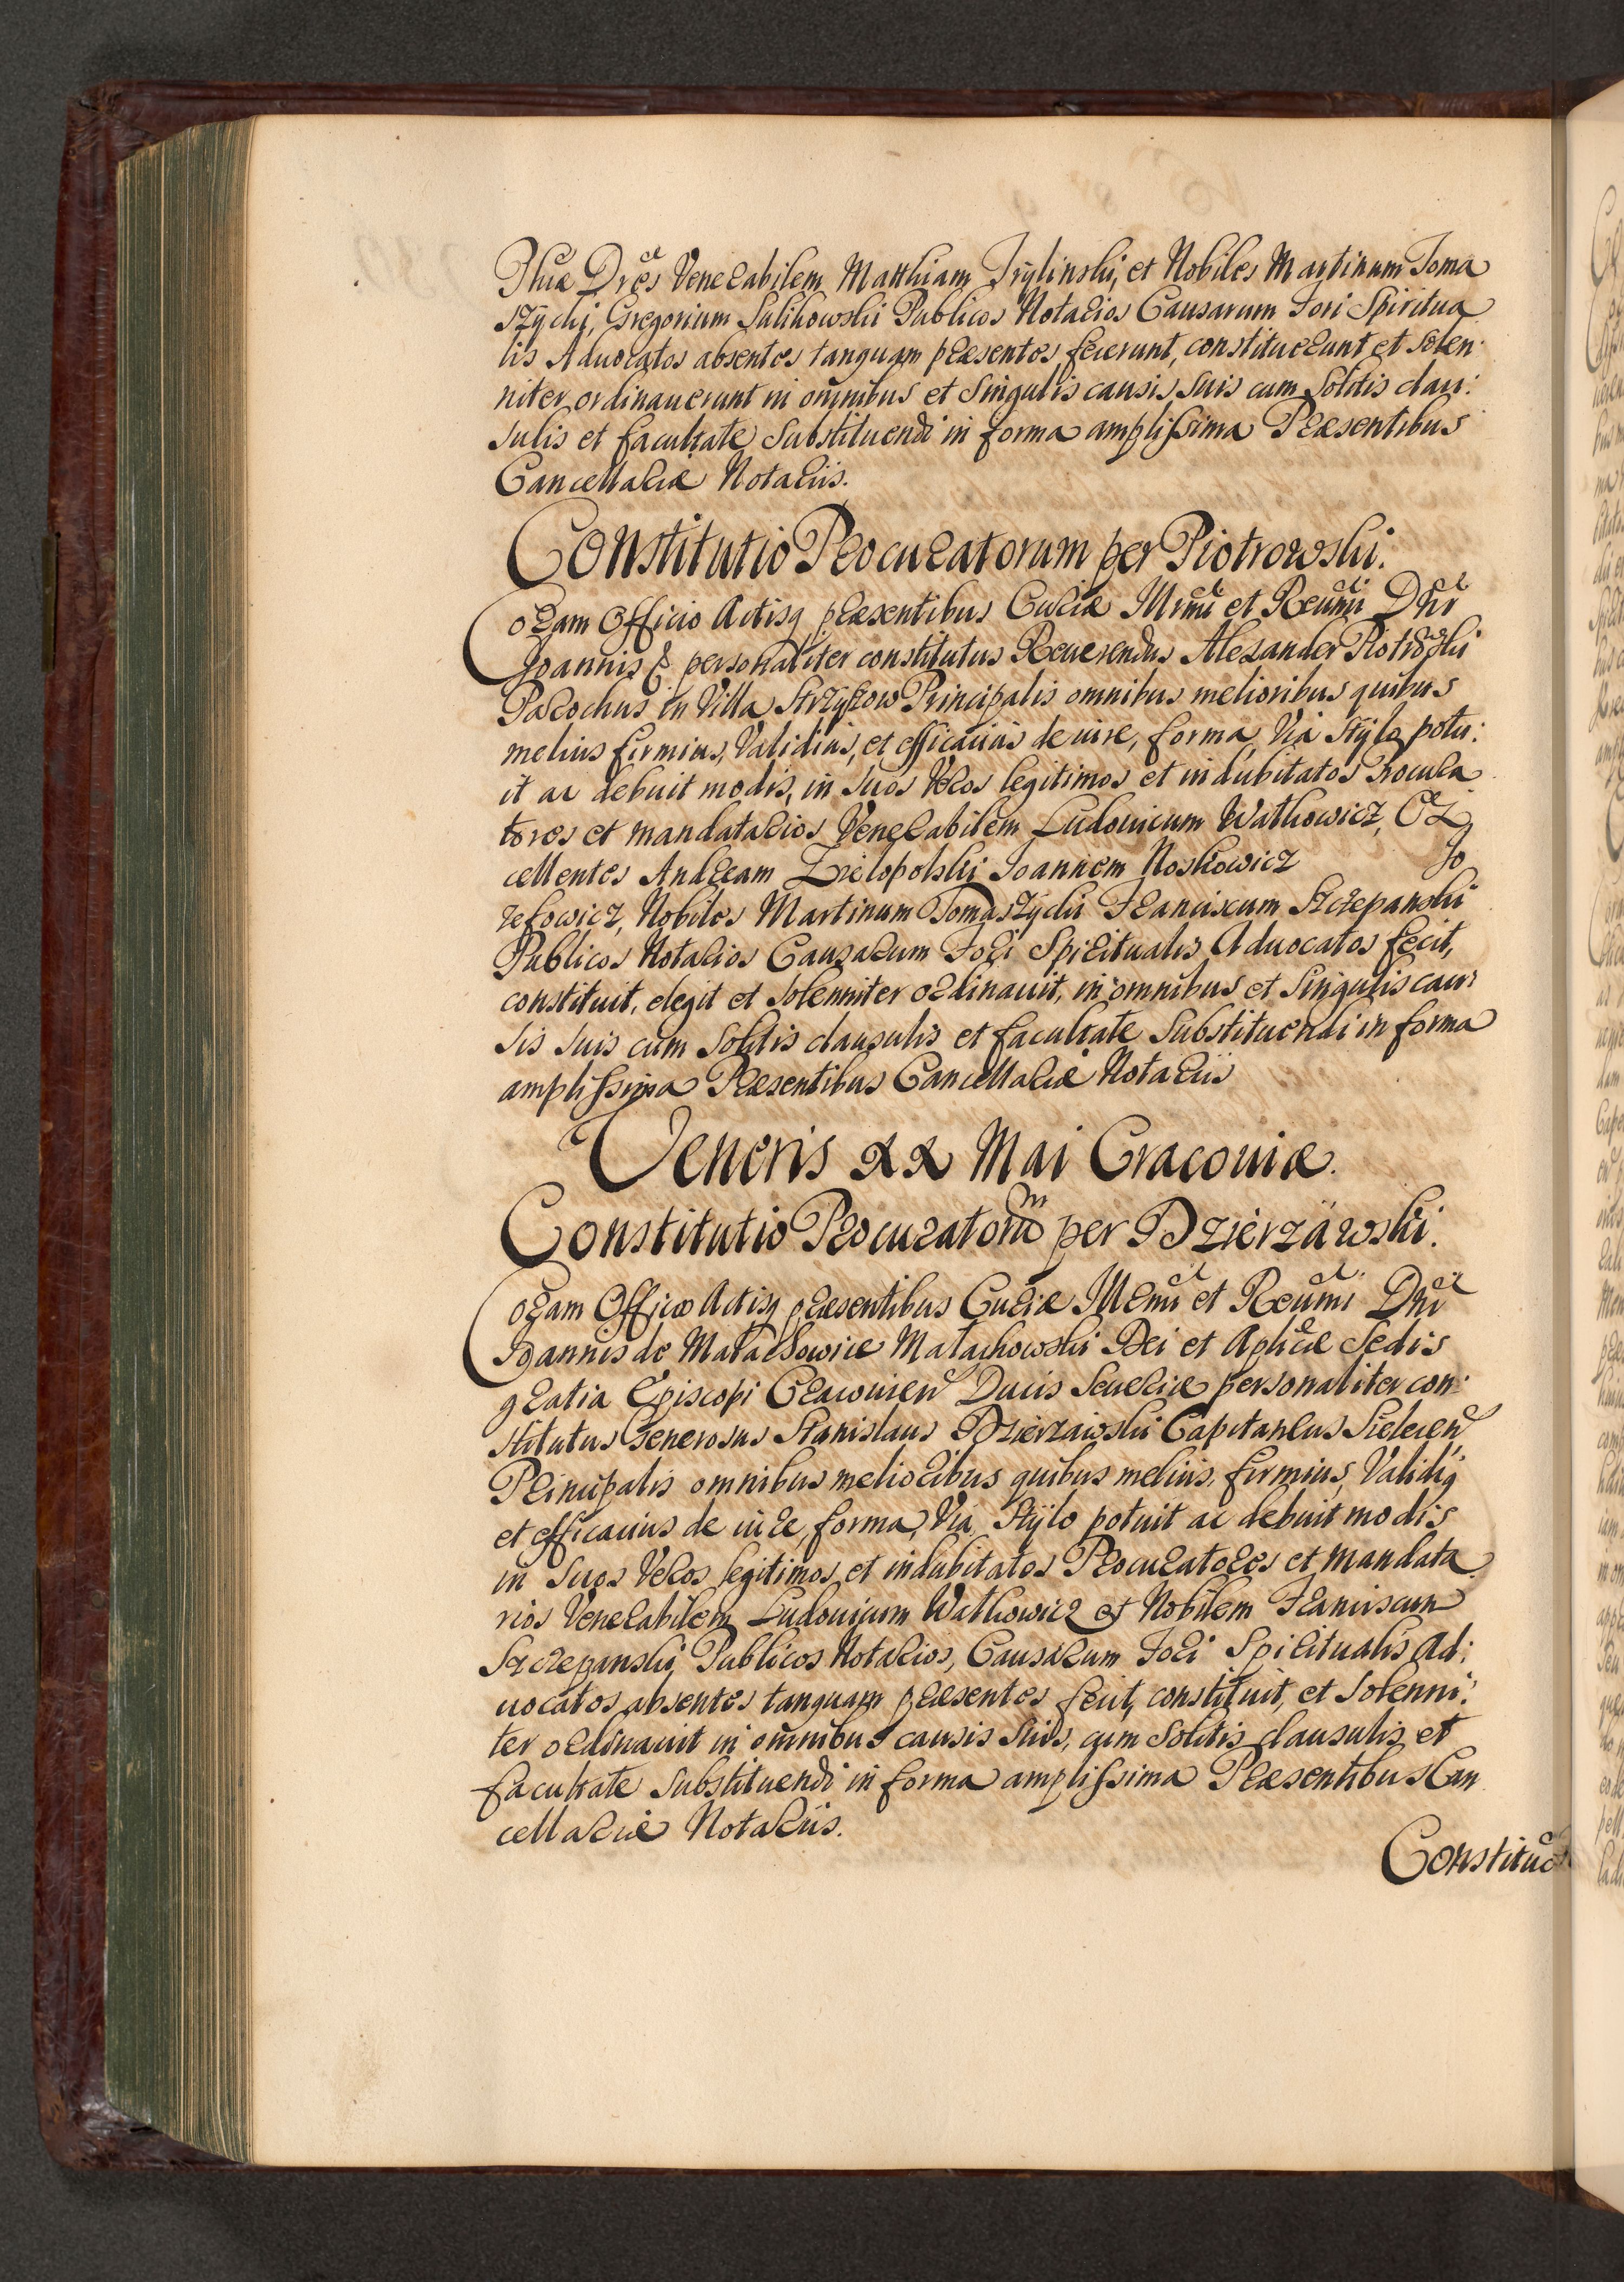 Phiæ Dres Venerabilem Matthiam Trylinski, et Nobiles Martinum Toma
szycki, Gregorium Sulikowski Publicos Notarios Causarum Fori Spiritua
lis Aduocatos absentes tanquam præsentes fecerunt, constituerunt et solen:
niter ordinauerunt in omnibus et singulis causis suis cum solitis clau:
sulis et facultate substituendi in forma amplissima Præsentibus
Cancellariæ Notariis.
Constitutio Procuratorum per Piotrowski.
Coram Officio Actisq præsentibus Curiæ Illrmi et Reumi Dni
Joannis & personaliter constitutus Reuerendus Alexander Piotrowski
Parochus in Villa Strzyszow Principalis omnibus melioribus quibus
melius firmius, Validius, et efficacius de iure, forma, Via Stylo potu:
it ac debuit modis, in suos Veros legitimos et indubitatos Procura
tores et mandatarios Venerabilem Ludouicum Wathowicz, Ex
cellentes Andream Zielopolski Joannem Noskowicz Jo
zefowicz, Nobiles Martinum Tomaszycki Franciscum Szczepanski
Publicos Notarios Causarum Fori Spiritualis Aduocatos fecit,
constituit, elegit et solenniter ordinauit, in omnibus et singulis cau:
sis suis cum solitis clausulis et facultate substituendi in forma
amplissima Præsentibus Cancellariæ Notariis
Veneris xx Mai Cracouiæ.
Constitutio Procuratorum per Dzierzawski.
Coram Officio Actisq præsentibus Curiæ Illrmi et Reumi Dni
Joannis de Małachowice Małachowski Dei et Aplicæ Sedis
gratia Episcopi Cracouien Ducis Seueriæ personaliter con:
stitutus Generosus Stanislaus Dzierzawski Capitaneus Sielecien
Principalis omnibus melioribus quibus melius, firmius, Validiq
et efficacius de iure, forma, Via, Stylo potuit ac debuit modis
in suos Veros legitimos et indubitatos Procuratores et mandata
rios Venerabilem Ludouicum Wathowicz et Nobilem Franciscum
Szczepanski Publicos Notarios, Causarum Fori Spiritualis Ad:
uocatos absentes tanquam præsentes fecit, constituit, et solenni:
ter ordinauit in omnibus causis suis, cum solitis clausulis et
facultate substituendi in forma amplissima Præsentibus Can
cellariæ Notariis.
Constituo